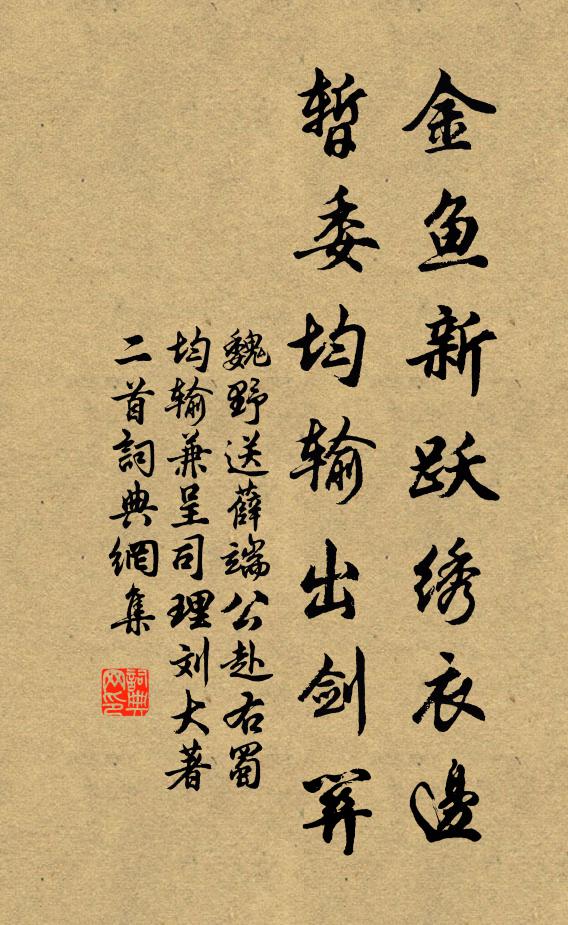 金鱼新跃绣衣邊
暂委均输出剑關
魏野送薛端公赴右蜀
均输兼呈司理刘大著
二首詞典網集
詞典网印